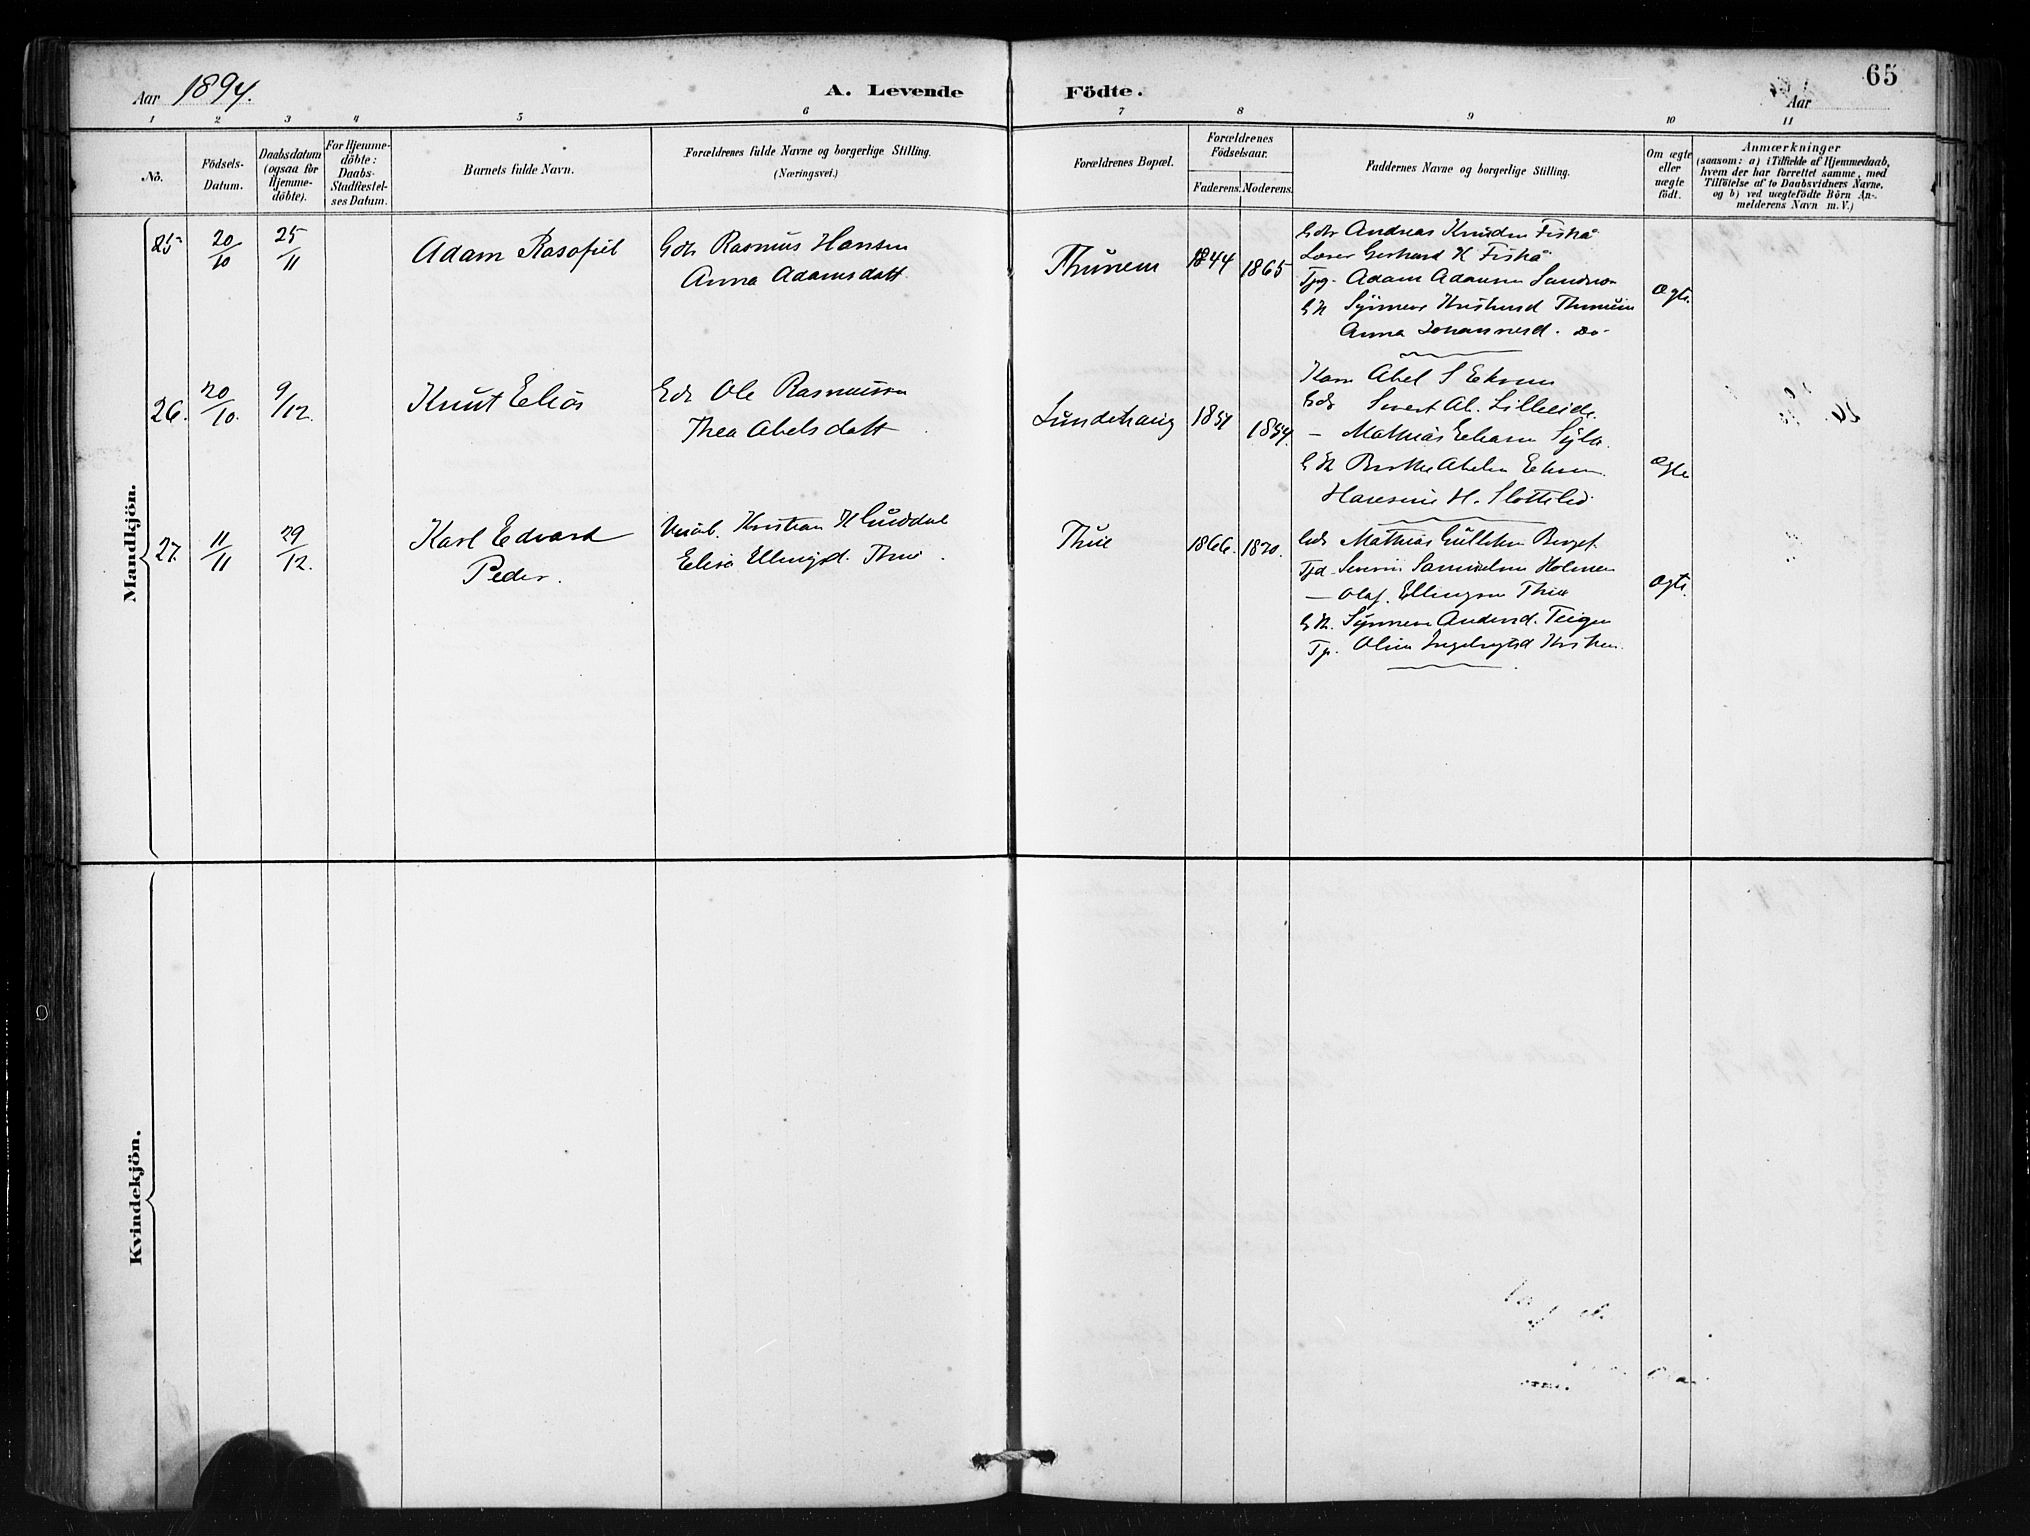 65
Aar 1894.
A. Levende Födte.
Aar
1 2 3 4 5 6 7 8 9 10 11
No.
Födsels-Datum.
Daabsdatum (ogsaa for Hjemme-döbte).
For Hjemme-döbte: Daabs-Stadfæstel-ses Datum.
Barnets fulde Navn.
Forældrenes fulde Navne og borgerlige Stilling.
(Næringsvei.)
Forældrenes Bopæl.
Forældrenes Födselsaar.
Faderens. Moderens.
Faddernes Navne og borgerlige Stilling.
Om ægte eller uægte födt.
Anmærkninger
(saasom: a) i Tilfælde af Hjemmedaab,
hvem der har forrettet samme, med
Tilföielse af to Daabsvidners Navne,
og b) ved uægtefödte Börn An-
melderens Navn m. V.)
Mandkjön.
25 20/10 25/11 Adam Rasofiel
Gdr Rasmus Hansen
Anna Adamsdatt.
Thunem 1844 1865
Gdr Andreas Knudsen Fiskå
Lærer Gerhard K Fiskå
Adam Adamsen
Thunem
Anna Johannesd. Do
Ægte
26. 20/10. 9/12. Knut Elias
Gdr Ole Rasmussen
Thea Abelsdatt
Lundehaug 1851 1854.
Abel S Ekrem
Gdr Sivert Ab. Lilleeide.
— Mathias
Berthe Abelsn Ekrem
H. Flotteli
Ægte
27. 11/11 29/12. Karl Edvard
Peder.
Kristian H
Elise Ellingsd. Thue.
Thue 1866. 1870.
Gdr Mathias Berget
Severin Samuelsen Holmen
— Olaf Ellingsen Thue
GK. Synneve Andersd. Teigen
Oline
Ægte.
Kvindekjön.